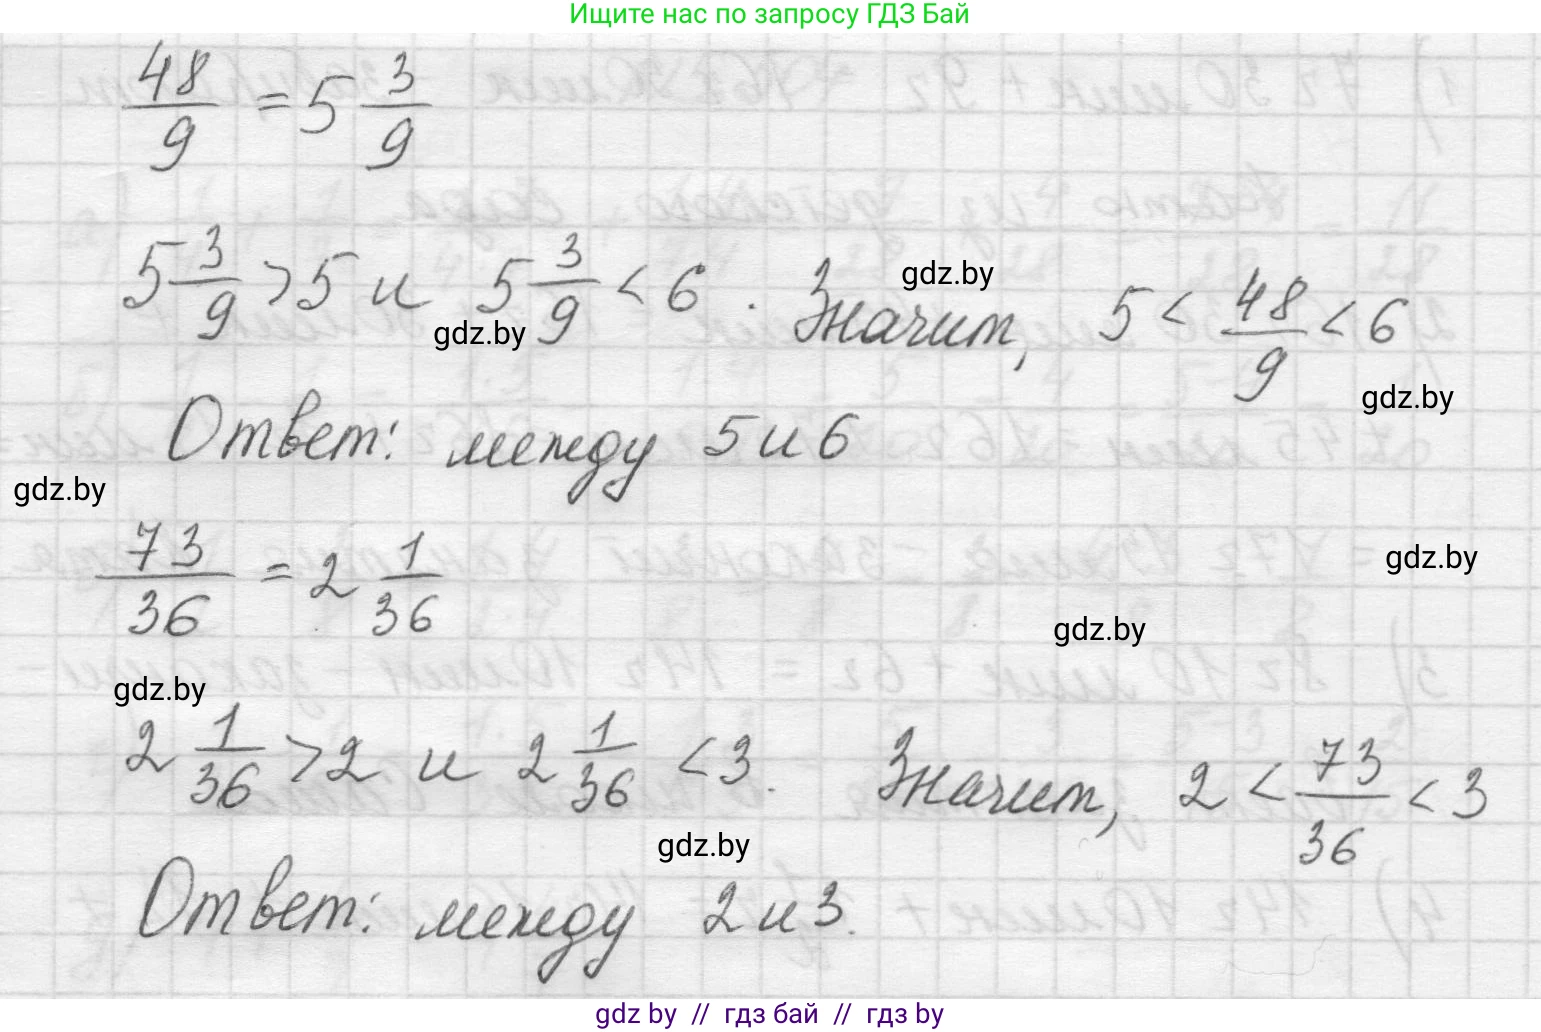 Ищите нас по запросу ГДЗ Бай
48/9 = 5 3/9
5 3/9 > 5 и 5 3/9 < 6. Значит, 5 < 48/9 < 6
gdz.by
gdz.by
gdz.by
Ответ: между 5 и 6
gdz.by
73/36 = 2 1/36
gdz.by
gdz.by
gdz.by
2 1/36 > 2 и 2 1/36 < 3. Значит, 2 < 73/36 < 3
gdz.by
Ответ: между 2 и 3.
gdz by // гдз бай // гдз by